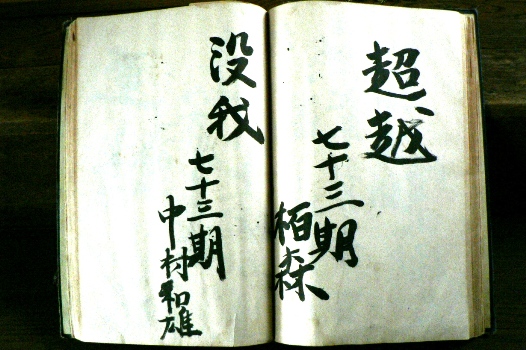 超越
七十三期
栢森
没我
七十三期
中村和雄